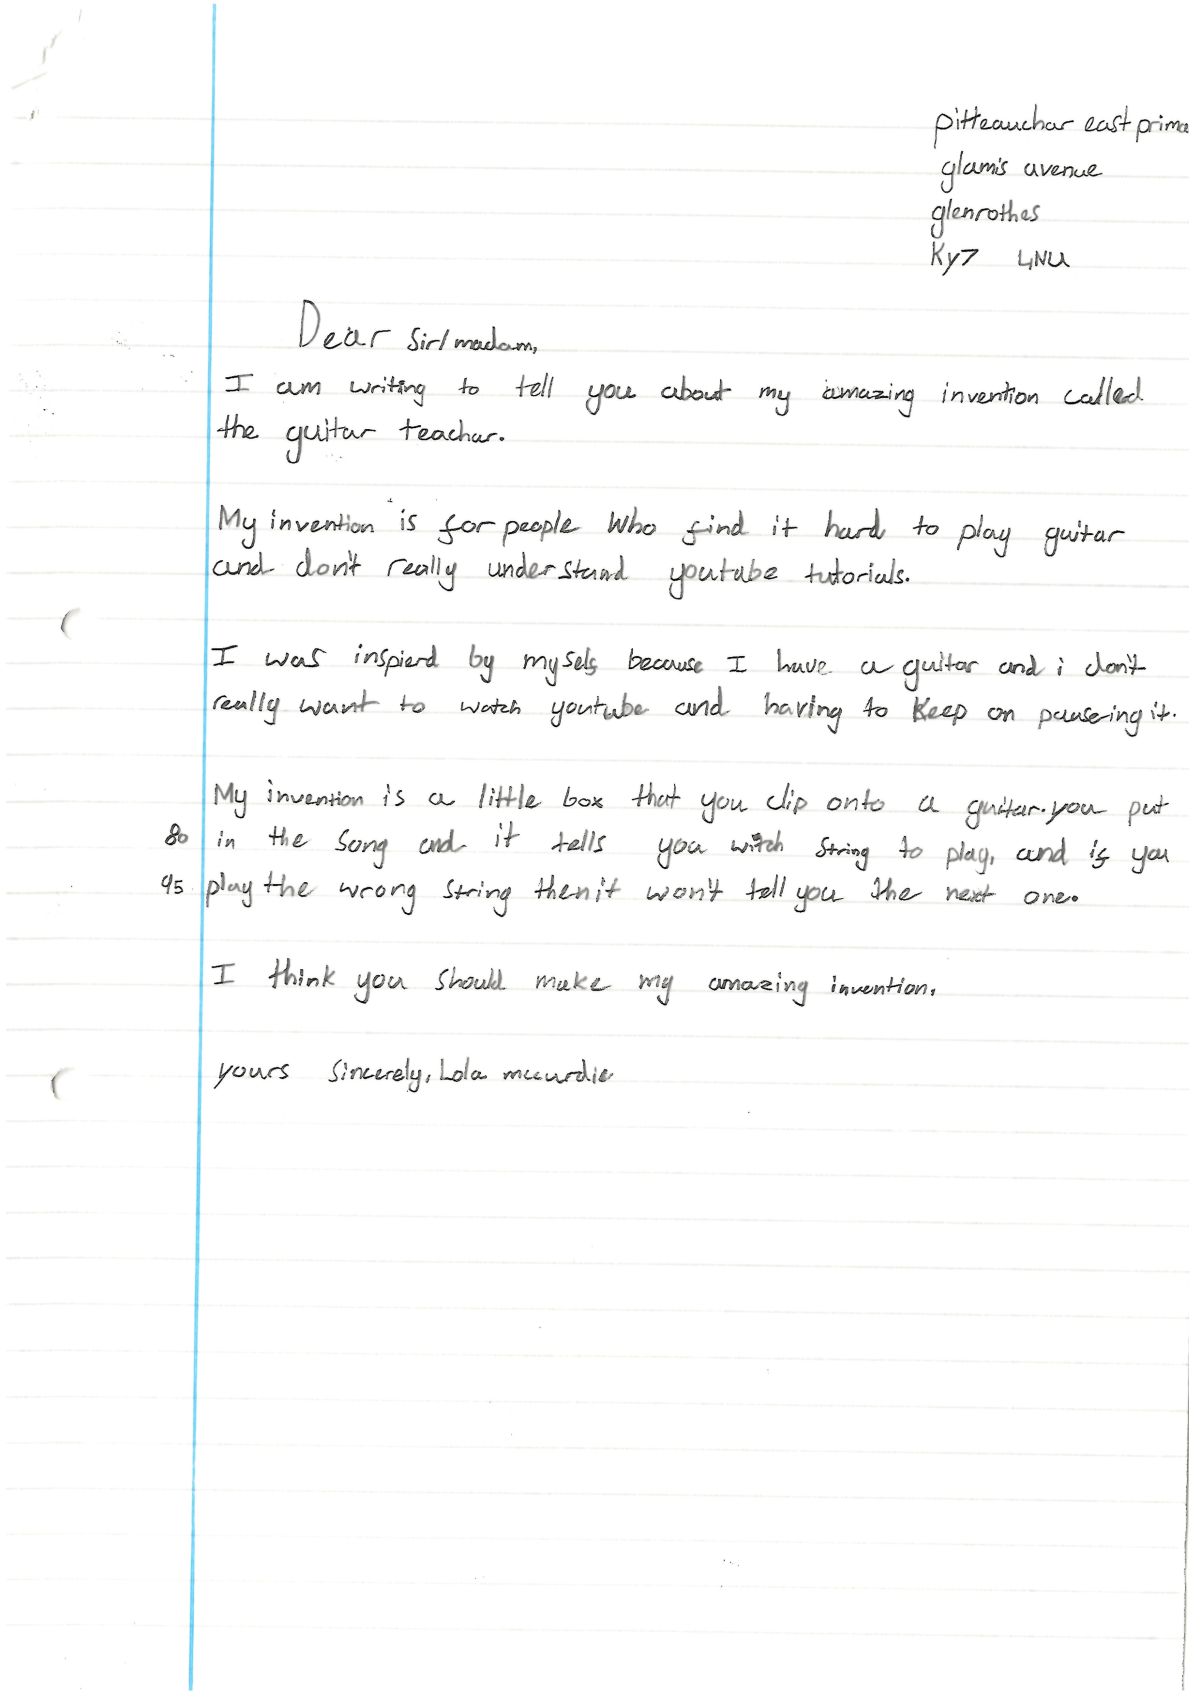 pitteauchar east prima
glamis avenue
glenrothes
Ky7 4NU
Dear Sir/madam,
I am writing to tell you about my amazing invention called
the guitar teachar.
My invention is for people Who find it hard to play guitar
and don't really understand youtube tutorials.
I was inspierd by myself because I have a guitar and i don't
really want to watch youtube and having to Keep on pausering it.
My invention is a little box that you clip onto a guitar. you put
80 in the Song and it tells you witch String to play, and if you
95 play the wrong String then it won't tell you the next one.
I think you Should make my amazing invention.
yours Sincerely, Lola mccurdie